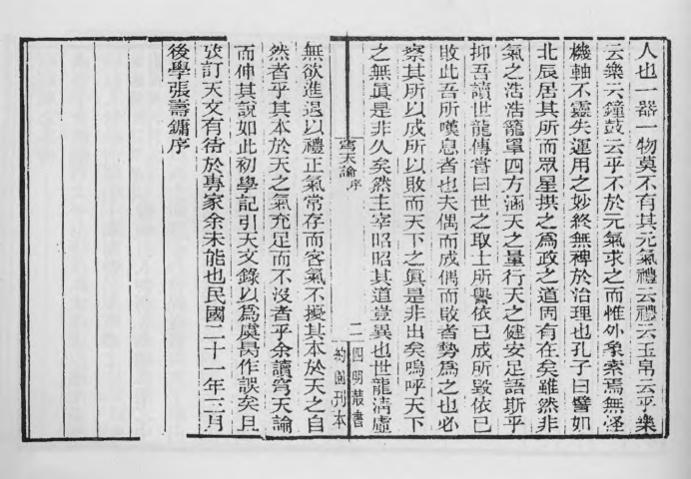 人也一器一物莫不有其元氣禮云禮云玉帛云乎樂
云樂云鐘鼓云乎不於元氣求之而惟外象索焉無怪
機軸不靈失運用之妙終無裨於治理也孔子曰譬如
北辰居其所而眾星拱之爲政之道固有在矣雖然非
氣之浩浩籠罩四方涵天之量行天之健安足語斯乎
抑吾讀世龍傳嘗曰世之取士所譽依已成所毀依已
敗此吾所嘆息者也夫偶而成偶而敗者勢爲之也必
察其所以成所以敗而天下之眞是非出矣嗚呼天下
之無眞是非久矣然主宰昭昭其道豈異也世龍淸虛
穹天論
序
二
四明叢書
約園刊本
無欲進退以禮正氣常存而客氣不擾其本於天之自
然者乎其本於天之氣充足而不沒者乎余讀穹天論
而伸其說如此初學記引天文錄以爲虞昺作誤矣且
攷訂天文有待於專家余未能也民國二十一年三月
後學張壽鏞序